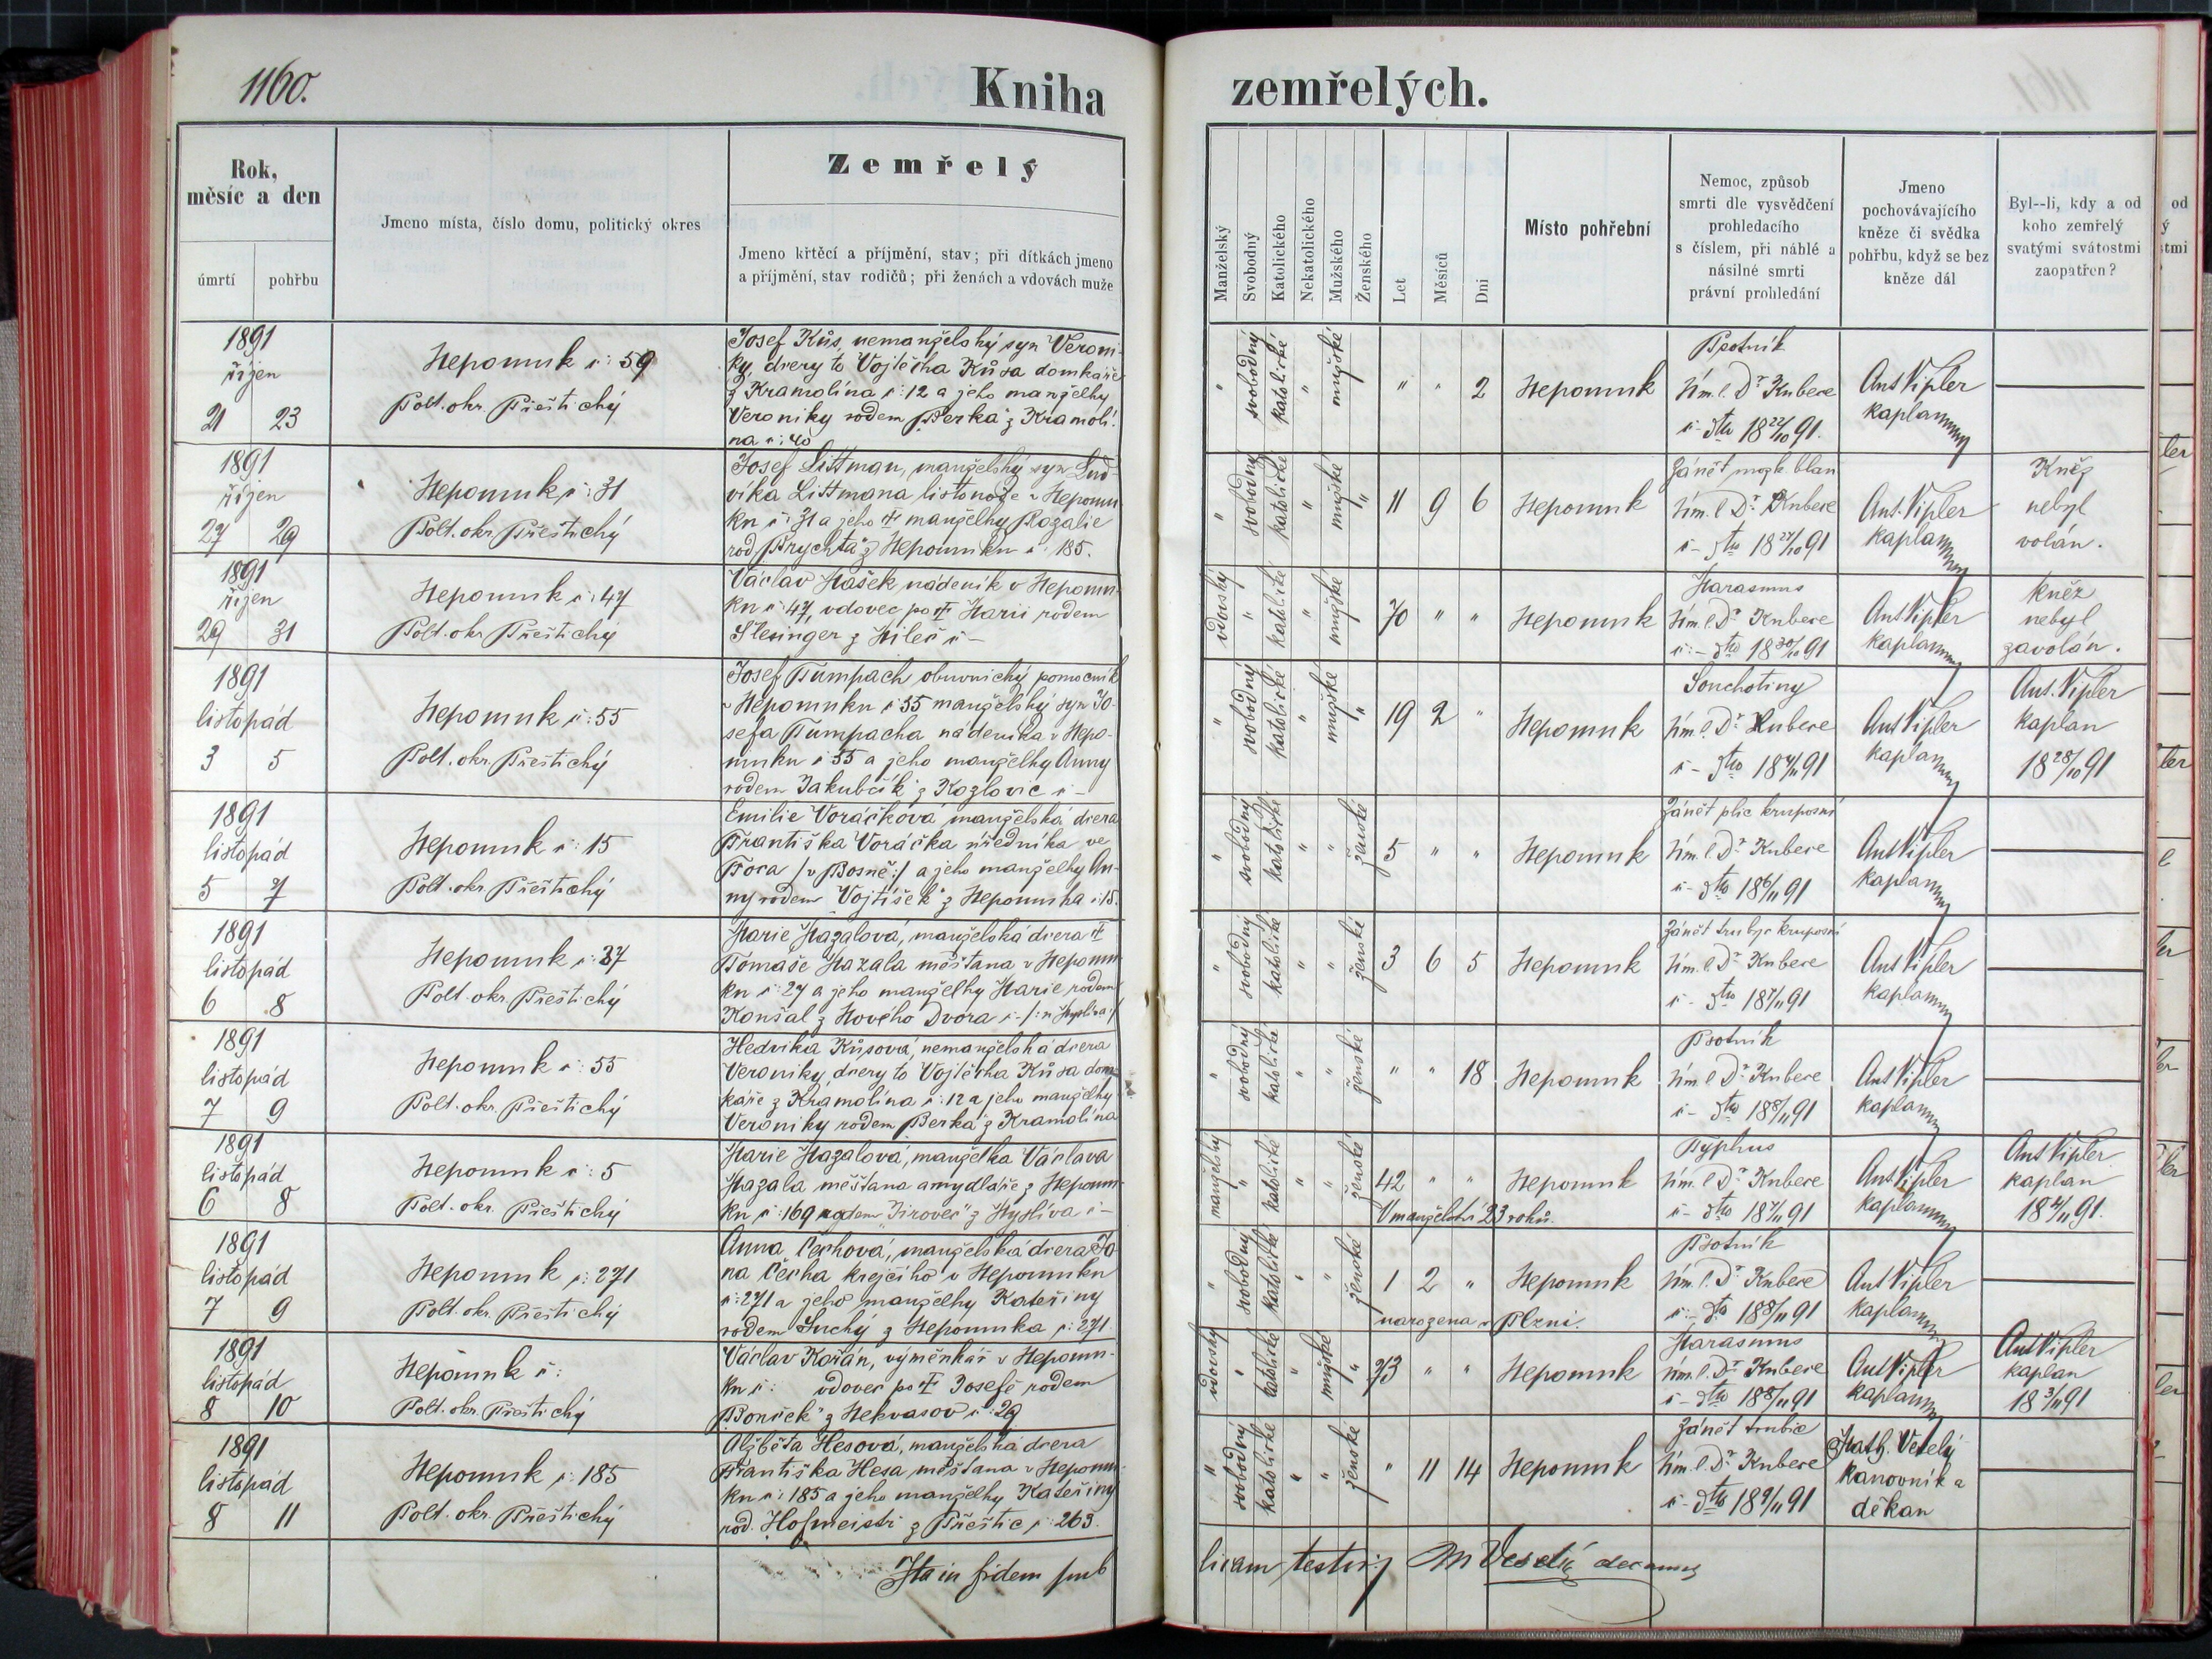 1160.
Kniha zemřelých.
Rok,
měsíc a den
úmrtí
pohřbu
Jmeno místa, číslo domu, politický okres
Zemřelý
Jmeno křtěcí a příjmění, stav; při dítkách jmeno
a příjmění, stav rodičů; při ženách a vdovách muže
Manželský
Svobodný
Katolického
Nekatolického
Mužského
Ženského
Let
Měsíců
Dní
Místo pohřební
Nemoc, způsob
smrti dle vysvědčení
prohledacího
s číslem, při náhlé a
násilné smrti
právní prohledání
Jmeno
pochovávajícího
kněze či svědka
pohřbu, když se bez
kněze dál
Byl--li, kdy a od
koho zemřelý
svatými svátostmi
zaopatřen?
1891
říjen
21 23
Nepomuk č: 59
Polt. okr. Přeštický
Josef Kůs, nemanželský syn Veroni-
ky, dcery to Vojtěcha Kůsa domkaře
z Kramolína č: 12 a jeho manželky
Veroniky rodem „Berka" z Kramolí-
na č: 40
" svobodný katolické " mužské
" " 2
Nepomuk
Psotník
tím. l. Dr. Kubece
č - dto 18 22/10 91.
Ant Vipler
kaplan
1891
říjen
27 29
Nepomuk č: 31
Polt. okr. Přeštický
Josef Littman, manželský syn Lud-
víka Littmana listonoše v Nepomu-
ku č: 31 a jeho † manželky Rozalie
rod „Brychta" z Nepomuku č: 185.
" svobodný katolické " mužské "
11 9 6
Nepomuk
Zánět mozk blan
tím. l. Dr. Kubece
č - dto 18 28/10 91
Ant. Vipler
kaplan
Kněz
nebyl
volán.
1891
říjen
29 31
Nepomuk č: 47
Polt. okr. Přeštický
Václav Hašek nádeník v Nepomu-
ku č: 47, vdovec po † Marii rodem
Šlesinger z
vdovský " katolické " mužské
70 " "
Nepomuk
Marasmus
tím. l. Dr. Kubece
č: - dto 18 30/10 91
Ant Vipler
kaplan
kněz
nebyl
zavolán.
1891
listopad
3 5
Nepomuk č: 55
Polt. okr. Přeštický
Josef Tumpach obuvnický pomocník
v Nepomuku č 55 manželský syn Jo-
sefa Tumpacha nádeníka v Nepo-
muku č 55 a jeho manželky Anny
rodem „Jakubčik" z Kozlovic č -
" svobodný katolické " mužské "
19 2 "
Nepomuk
Souchotiny
tím. l. Dr. Kubece
č - dto 18 4/11 91
Ant Vipler
kaplan
Ant. Vipler
kaplan
18 28/10 91
1891
listopad
5 7
Nepomuk č: 15
Polt. okr. Přeštický
Emilie Voráčková manželská dcera
Františka Voráčka úředníka ve
Foca /: v Bosně :/ a jeho manželky An-
ny rodem „Vojtíšek" z Nepomuka č: 15.
" svobodný katolické " " ženské
5 " "
Nepomuk
Zánět plic kruposní
tím. l. Dr. Kubece
č - dto 18 6/11 91
Ant Vipler
kaplan
1891
listopad
6 8
Nepomuk č: 37
Polt. okr. Přeštický
Marie Mazalová, manželská dcera †
Tomáše Mazala měštana v Nepomu-
ku č: 27 a jeho manželky Marie rodem
Koušal z Nového Dvora č - /: u Myslíva :/
" svobodný katolické " " ženské
3 6 5
Nepomuk
Zánět trubic kruposní
tím. l. Dr. Kubece
č - dto 18 7/11 91
Ant Vipler
kaplan
1891
listopad
7 9
Nepomuk č: 55
Polt. okr. Přeštický
Hedvika Kůsová, nemanželská dcera
Veroniky, dcery to Vojtěcha Kůsa dom-
káře z Kramolína č: 12 a jeho manželky
Veroniky rodem „Berka" z Kramolína
" svobodný katolické " " ženské
" " 18
Nepomuk
Psotník
tím. l. Dr. Kubece
č - dto 18 8/11 91
Ant Vipler
kaplan
1891
listopad
6 8
Nepomuk č: 5
Polt. okr. Přeštický
Marie Mazalová, manželka Václava
Mazala měštana a mydláře z Nepomu-
ku č: 169 rodem „Jirovec" z Myslíva č -
manželský " katolické " " ženské
42 " "
V manželství 23 roků.
Nepomuk
Typhus
tím. l. Dr. Kubece
č - dto 18 7/11 91
Ant Vipler
kaplan
Ant Vipler
kaplan
18 4/11 91.
1891
listopad
7 9
Nepomuk č: 271
Polt. okr. Přeštický
Anna Čechová, manželská dcera Ja-
na Čecha krejčího v Nepomuku
č: 271 a jeho manželky Kateřiny
rodem Suchý z Nepomuka č: 271
" svobodný katolické " " ženské
1 2 "
narozena v Plzni.
Nepomuk
Psotník
tím. l. Dr. Kubece
č - dto 18 8/11 91
Ant Vipler
kaplan
1891
listopad
8 10
Nepomuk č:
Polt. okr. Přeštický
Václav Kořán, výměnkář v Nepomu-
ku č: vdovec po † Josefě rodem
„Bouček" z Nekvasov č: 29
vdovský " katolické " mužské "
73 " "
Nepomuk
Marasmus
tím. l. Dr. Kubece
č - dto 18 8/11 91
Ant Vipler
kaplan
Ant Vipler
kaplan
18 3/11 91
1891
listopad
8 11
Nepomuk č: 185
Polt. okr. Přeštický
Alžběta Hesová, manželská dcera
Františka Hesa, měštana v Nepomu-
ku č: 185 a jeho manželky Kateřiny
rod. Hofmeistr z Přeštic č: 263.
" svobodný katolické " " ženské
" 11 14
Nepomuk
Zánět trubic
tím. l. Dr. Kubece
č - dto 18 9/11 91
Math. Veselý
kanovník a
děkan
Ita in fidem pub
licam testor M Veselý decanus